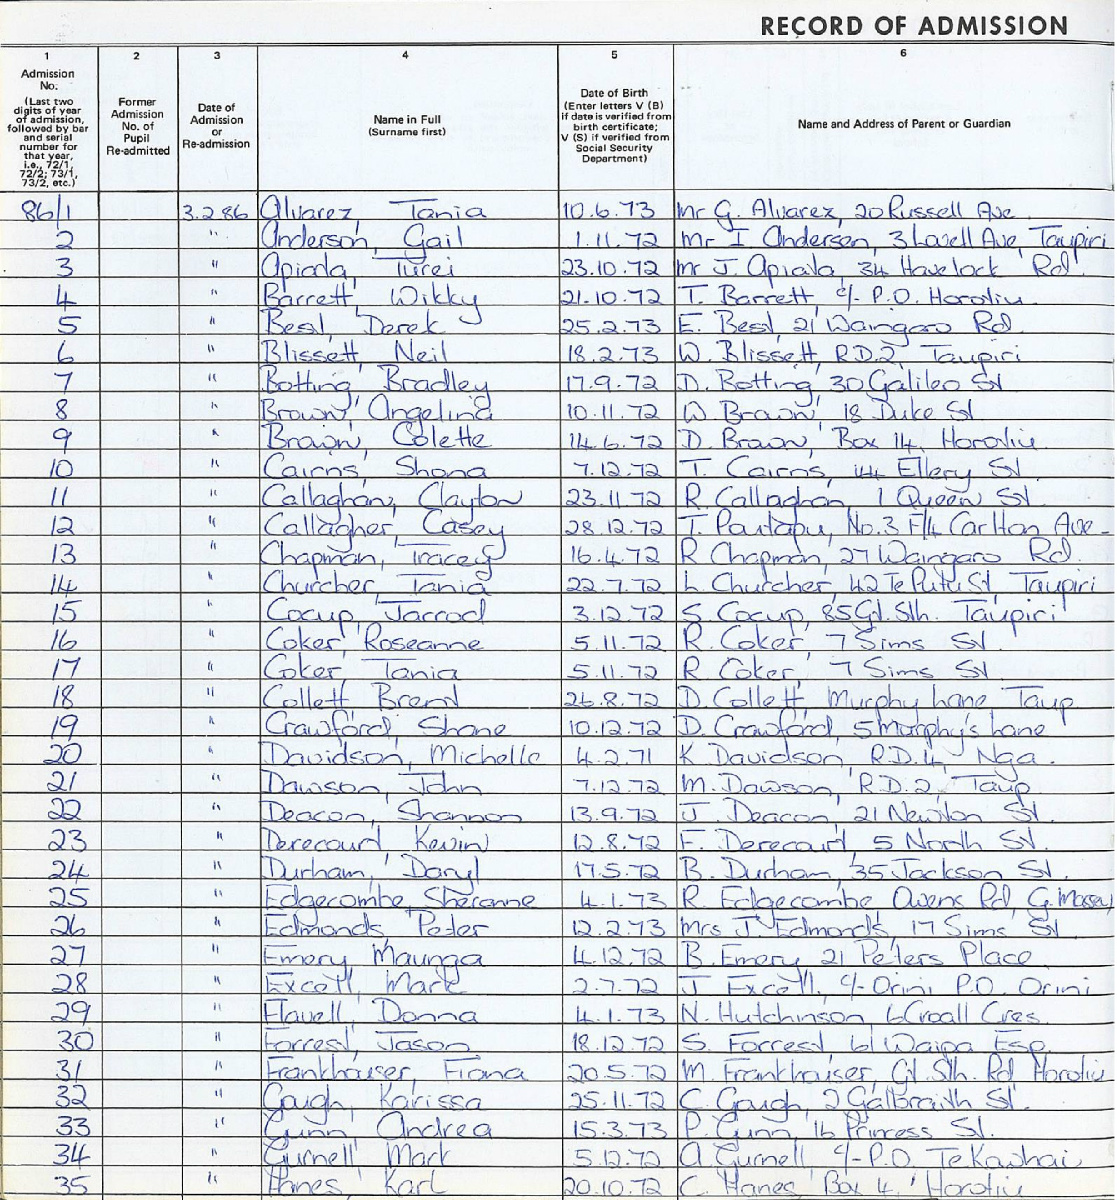 RECORD OF ADMISSION
1 2 3 4 5 6
Admission No. (Last two digits of year of admission, followed by bar and serial number for that year, i.e., 72/1, 72/2; 73/1, 73/2, etc.)
Former Admission No. of Pupil Re-admitted
Date of Admission or Re-admission
Name in Full (Surname first)
Date of Birth (Enter letters V (B) if date is verified from birth certificate; V (S) if verified from Social Security Department)
Name and Address of Parent or Guardian
86/1 3.2.86 Alvarez, Tania 10.6.73 Mr G. Alvarez, 20 Russell Ave
2 " Anderson, Gail 1.11.72 Mr I. Anderson, 3 Lavell Ave, Taupiri
3 " Apiata, Turei 23.10.72 Mr J. Apiata, 34 Havelock Rd
4 " Barrett, Wikky 21.10.72 T. Barrett, c/- P.O. Horotiu
5 " Best, Derek 25.2.73 E. Best, 21 Waingaro Rd
6 " Blissett, Neil 18.2.73 W. Blissett, R.D.2, Taupiri
7 " Botting, Bradley 17.9.72 D. Botting, 30 Galileo St
8 " Brown, Angelina 10.11.72 W Brown, 18 Duke St
9 " Brown, Colette 14.6.72 D. Brown, Box 14, Horotiu
10 " Cairns, Shona 7.12.72 T. Cairns, 44 Ellery St
11 " Callaghan, Clayton 23.11.72 R. Callaghan, 1 Queen St
12 " Callagher, Casey 28.12.72 T. Pautapu, No.3 F/4 Carlton Ave
13 " Chapman, Tracey 16.4.72 R Chapman, 27 Waingaro Rd
14 " Churcher, Tania 22.7.72 L. Churcher, 42 Te Putu St Taupiri
15 " Cocup, Jarrod 3.12.72 S. Cocup, 85 Gt. Sth. Taupiri
16 " Coker, Roseanne 5.11.72 R. Coker, 7 Sims St.
17 " Coker, Tania 5.11.72 R. Coker, 7 Sims St.
18 " Collett, Brent 26.8.72 D. Collett, Murphy Lane, Taup
19 " Crawford, Shane 10.12.72 D. Crawford, 5 Murphy's Lane
20 " Davidson, Michelle 4.2.71 K Davidson, R.D.4, Nga.
21 " Dawson, John 7.12.72 M. Dawson, R.D.2, Taup
22 " Deacon, Shannon 13.9.72 J. Deacon, 21 Newton St.
23 " Derecourt Kevin 12.8.72 F. Derecourt, 5 North St.
24 " Durham, Daryl 17.5.72 B. Durham, 35 Jackson St.
25 " Edgecombe, Sheranne 4.1.73 R. Edgecombe, Owens Rd, G. Massey
26 " Edmonds, Peter 12.2.73 Mrs J. Edmonds, 17 Sims St
27 " Emery, Maunga 4.12.72 B. Emery, 21 Peters Place
28 " Excell, Mark 2.7.72 J Excell, c/- Orini P.O. Orini
29 " Flavell, Donna 4.1.73 N. Hutchinson, 6 Croall Cres.
30 " Forrest, Jason 18.12.72 S. Forrest 61 Waipa Esp.
31 " Frankhauser, Fiona 20.5.72 M. Frankhauser, Gt. Sth. Rd Horotiu
32 " Gough, Karissa 25.11.72 C. Gough, 2 Galbraith St.
33 " Gunn, Andrea 15.3.73 P. Gunn, 16 Princess St.
34 " Gurnell Mark 5.12.72 A. Gurnell, c/- P.O. Te Kowhai
35 " Hanes, Karl 20.10.72 C. Hanes Box 4, Horotiu